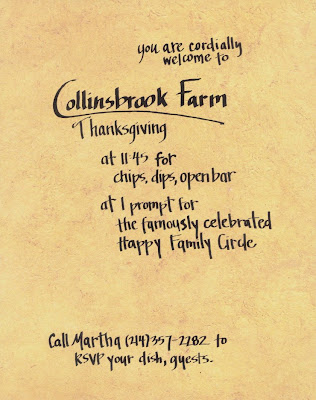 you are cordially
welcome to
Collinsbrook Farm
Thanksgiving
at 11:45 for
chips, dips, open bar
at 1 prompt for
the famously celebrated
Happy Family Circle
Call Martha (214) 357-2282 to
RSVP your dish, guests.